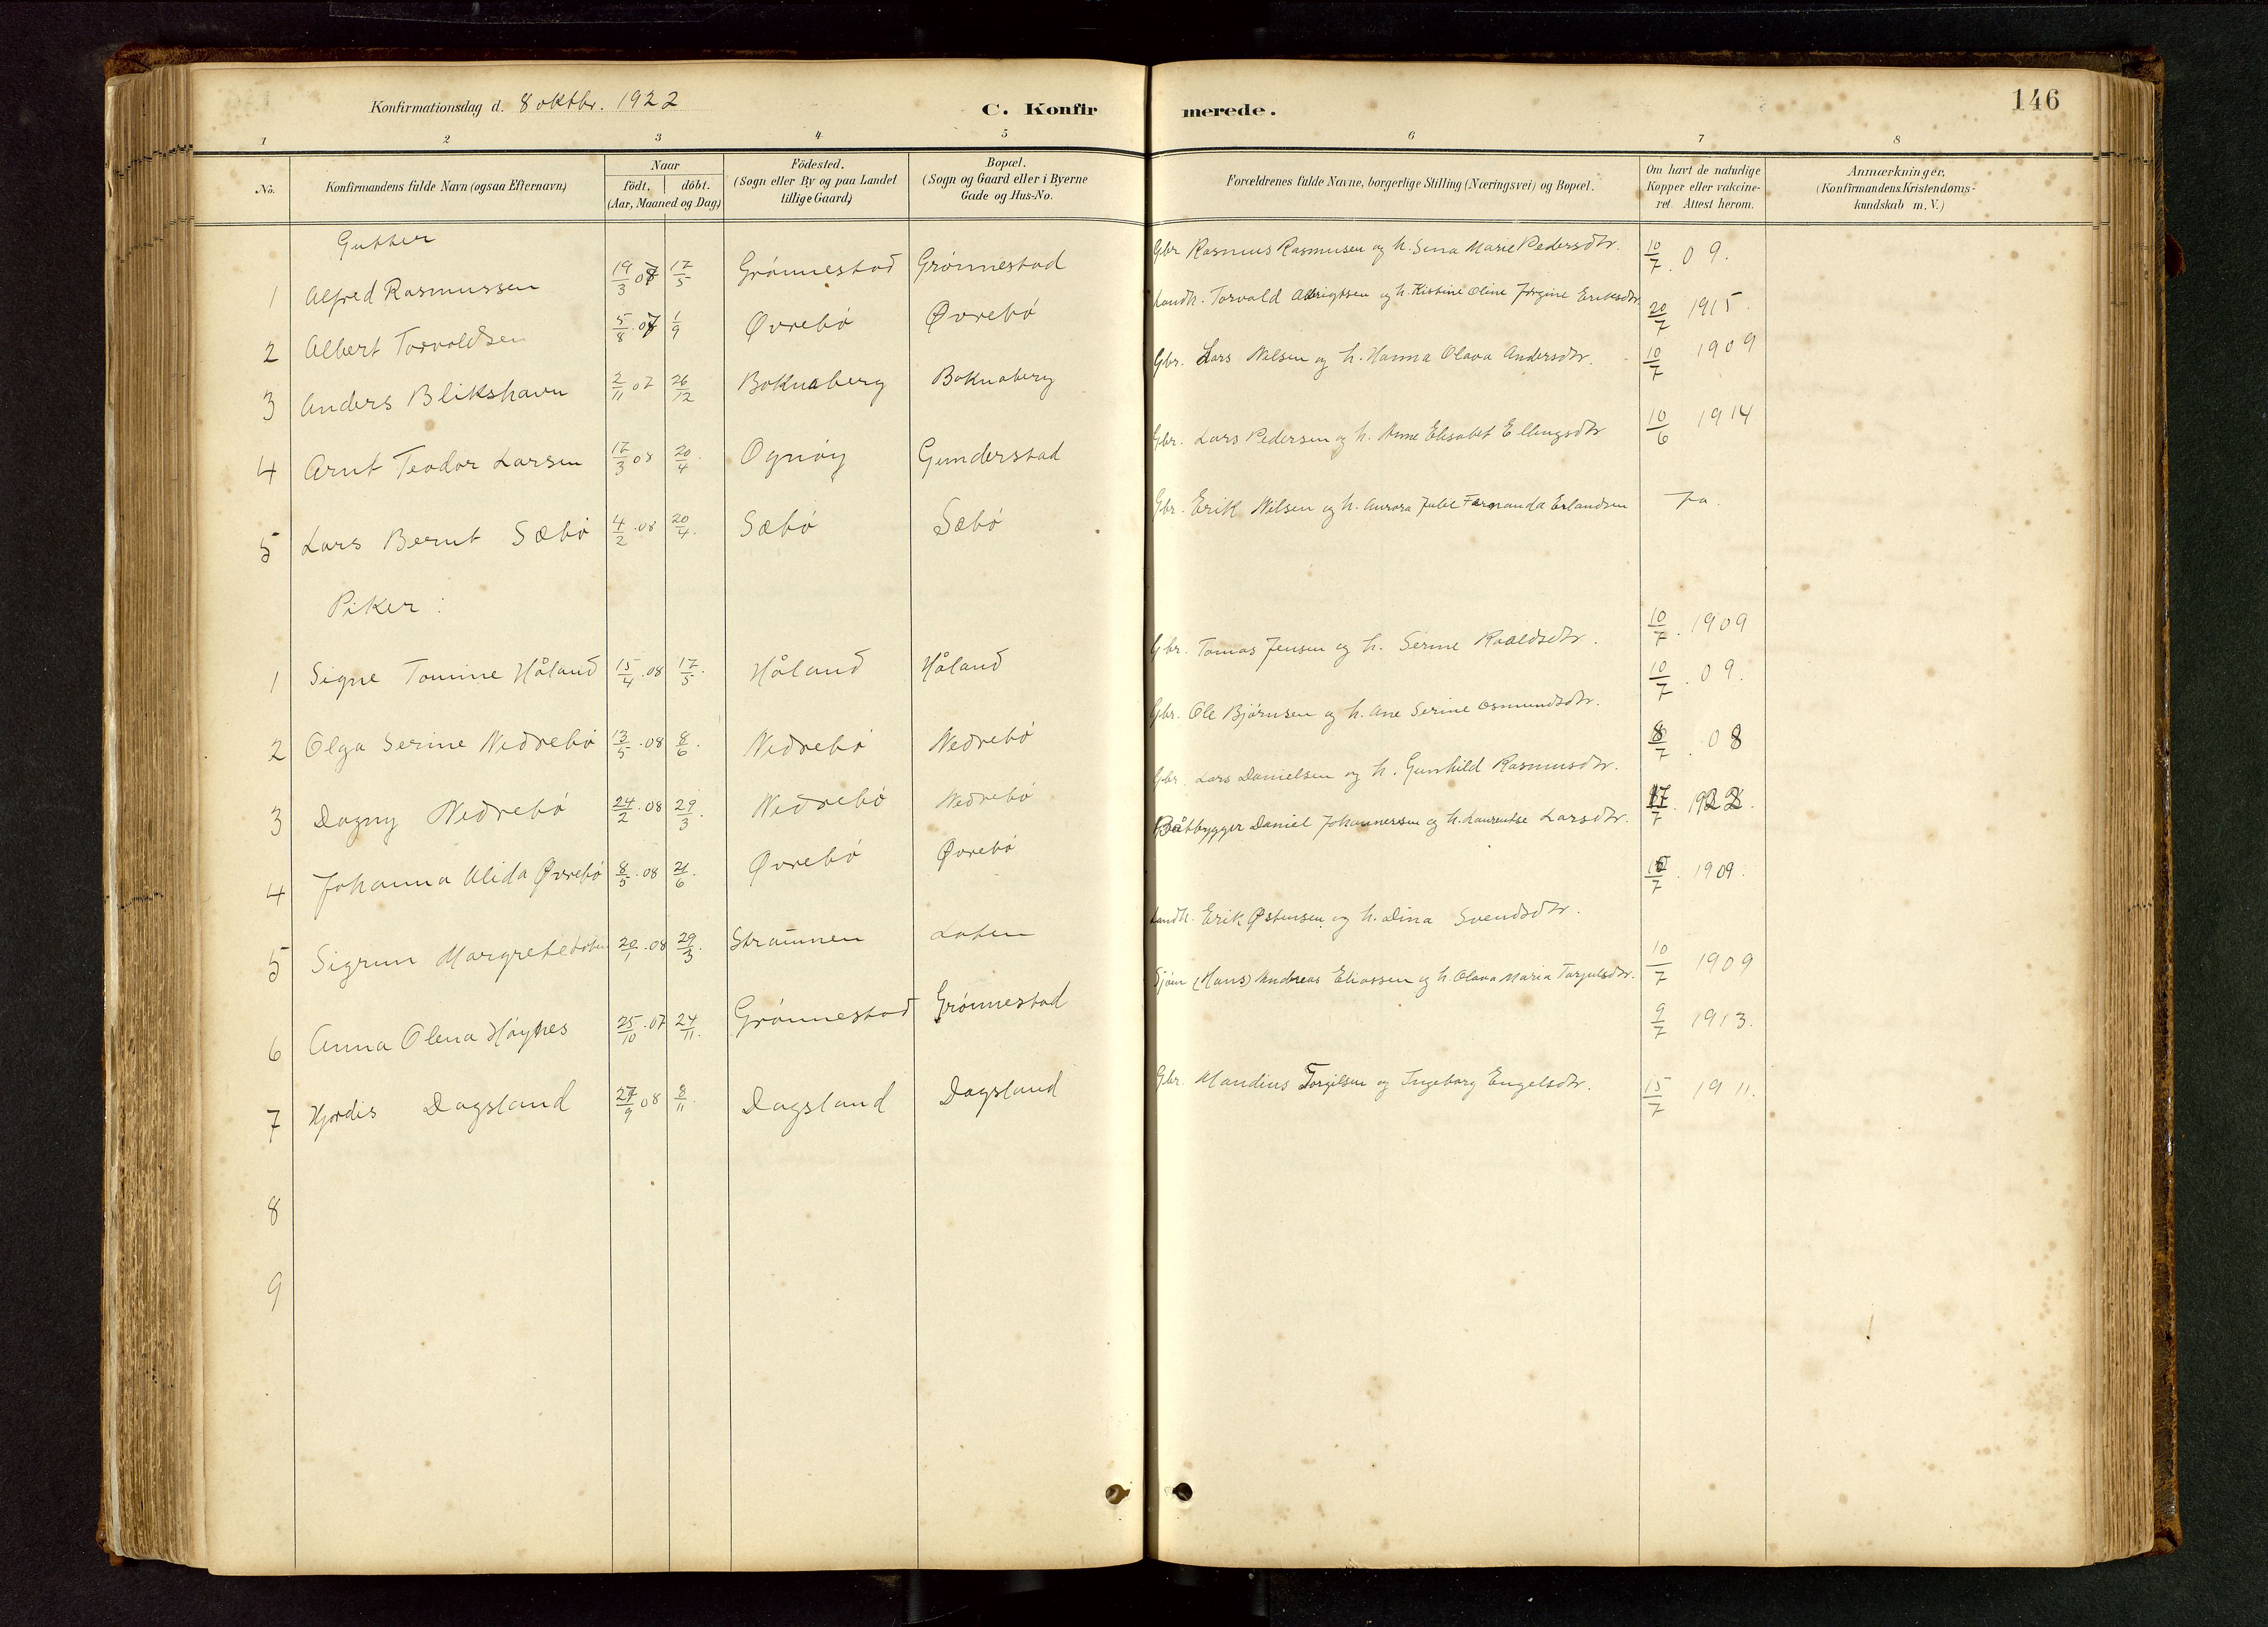 Konfirmationsdag d. 8 oktbr. 1922
C. Konfirmerede.
146
1 2 3 4 5 6 7 8
No.
Konfirmandens fulde Navn (ogsaa Efternavn)
Naar
födt, döbt.
(Aar, Maaned og Dag)
Födested.
(Sogn eller By og paa Landet
tillige Gaard)
Bopæl.
(Sogn og Gaard eller i Byerne
Gade og Hus-No.
Forældrenes fulde Navne, borgerlige Stilling (Næringsvei) og Bopæl.
Om havt de naturlige
Kopper eller vakcine-
ret. Attest herom.
Anmærkninger,
(Konfirmandens Kristendoms-
kundskab m. V.)
Gutter
1 Alfred Rasmussen 19/3 08 17/5 Grönnestad Grönnestad Gbr Rasmus Rasmusen og h. Sina Marie Pedersdtr. 10/7. 09.
2 Albert Torvaldsen 5/8.07 1/9 Øvrebö Øvrebö Landh. Torvald og h. Kistine Oline Jørgine Eriksdtr 20/7 1915.
3 Anders Blikshavn 2/11 07 26/12 Boknaberg Boknaberg Gbr. Lars Nilsen og h. Hanna Olava Andersdtr. 10/7 1909
4 Arnt Teodor Larsen 17/3 08 20/4. Ognöy Gunderstad Gbr. Lars Pedersen og h. Anne Elisabet Ellingsdtr 10/6 1914
5 Lars Bernt Sæbö 4/2.08 20/4. Sæbö Sæbö Gbr. Erik Nilsen og h. Aurora Julie Fernanda Erlandsen Ja.
Piker:
1 Signe Tomine Håland 15/4.08 17/5. Håland Håland Gbr. Tomas Jensen og h. Serine Roaldsdtr. 10/7. 1909
2 Olga Serine Nedrebö 13/5.08 8/6. Nedrebö Nedrebö Gbr. Ole Björnsen og h. Ane Serine Osmundsdtr. 10/7. 09.
3 Dagny Nedrebö 24/2.08 29/3. Nedrebö Nedrebö Gbr. Lars Danielsen og h. Gunhild Rasmusdtr. 8/7. 08
4 Johanna Alida Øvrebö 8/5.08 21/6. Øvrebö Øvrebö Båtbygger Daniel Johannessen og h. Laurentse Larsdtr. 17/7. 1922.
5 Sigrun Margrete 20/1.08 29/3. Straumen Loten Landh. Erik Østensen og h. Dina Svendsdtr. 10/7. 1909.
6 Anna Olena Höynes 25/10.07 24/11. Grönnestad Grönnestad Sjöm (Hans) Andreas Eliassen og h. Olava Maria Torjulsdtr. 10/7 1909
9/7 1913.
7 Hjørdis Dagsland 27/9 08 8/11. Dagsland Dagsland Gbr. Mandius Torgilsen og Ingeborg Engelsdtr. 15/7 1911.
8
9